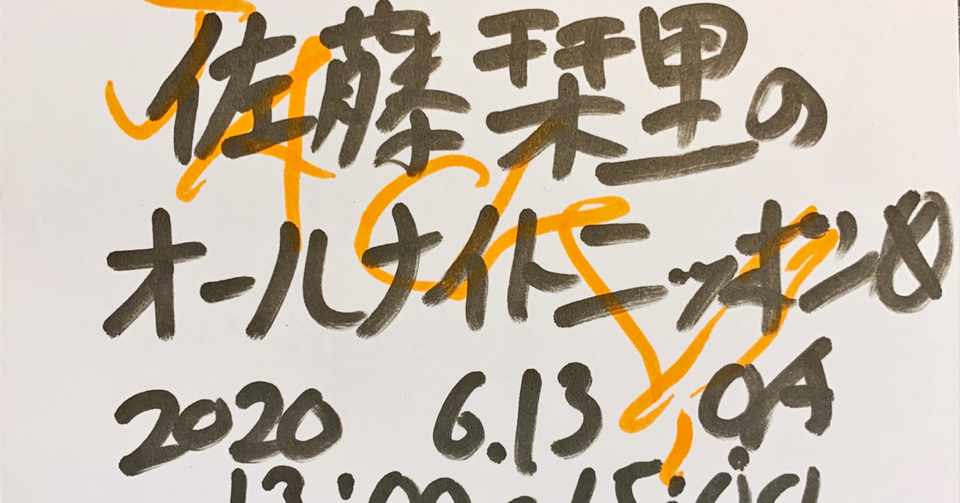 佐藤栞里の
オールナイトニッポン
2020 6.13 OA
13:00~15:00